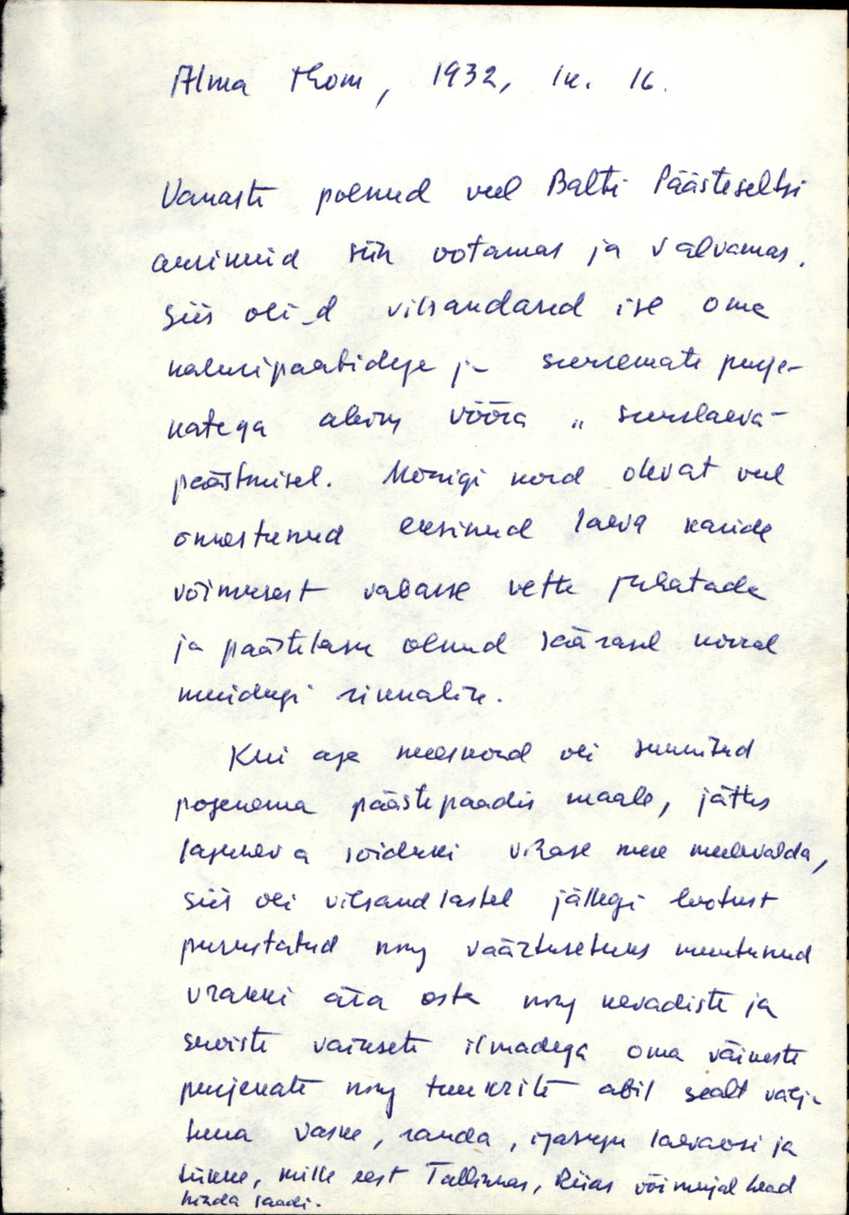 Alma Thom, 1932, lk. 16.
Vanasti polnud veel Balti Päästeseltsi
aurikuid siin ootamas ja valvamas.
Siis oli_d vilsandased ise oma
kaluripaatidega ja suuremate purje-
katega abiks võõra „ suurlaeva-
päästmisel. Mõnigi kord olevat veel
õnnestunud eksinud laeva karide
võimusest vabasse vette juhatada
ja päästetasu olnud säärasel korral
muidugi rinnaline.
Kui aga meeskond oli sunnitud
põgenema päästepaadis maale, jättes
laguneva sõiduki vihase mere meelevalda,
siis oli vilsandlastel jällegi lootust
purustatud ning väärtusetuks muutunud
vrakki ära osta ning kevadiste ja
suviste vaiksete ilmadega oma väikeste
purjekate ning tuukrite abil sealt välja
tuua vaske, rauda, igasugu laevaosi ja
tükke, mille eest Tallinnas, Riias või mujal head
hinda saadi.